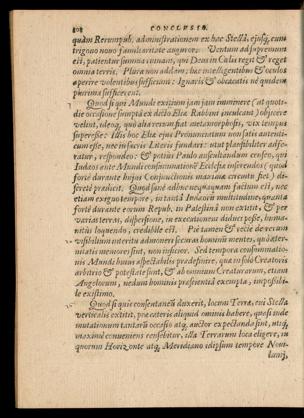 CONCLUSIO.
quàm Rerumpub. administrationem ex hac Stellâ, ejusq́; cum
trigono novo familiaritate auguror. Ventum ad supremum
est, patientur summa ruinam, qui Deus in Cælis regit & reget
omnia terris. Plura non addam: hæc intelligentibus & oculos
aperire volentibus sufficiant: Ignaris & obcæcatis nè quidem
plurima sufficerent.
Quod si qui Mundi exitium jam jam imminere (at quoti-
die occasione sumptâ ex dicto Eliæ Rabini jamdudum) objicere
velint, ideoq́;
superesse: Illis hoc Eliæ ejus Pronunciatum non satis autenti-
cum esse, nec in sacris Literis fundari: utut plausibiliter adfe-
ratur, respondeo: & potius Paulo auscultandum censeo, qui
Iudæos ante Mundi consummationem Ecclesiæ inserendos (quod
fortè durante hujus Conjunctionis maximæ
disertè prædicit. Quod sanè adhuc nequaquam factum est, nec
etiam exiguo tempore, in tantâ Iudæorum multitudine, quanta
fortè durante eorum Repub. in Palæstinâ non extitit, & per
varias terras, dispersione, in executionem deduci posse, huma-
nitùs loquendo, credibile est. Piè tamen & rectè de rerum
visibilium interitu admonere securas hominum mentes, ut æter-
nitatis memores sint, non inficior. Sed tempora consummatio-
nis Mundi hujus aspectabilis prædefinire, quæ in solo Creatoris
arbitrio & potestate sunt, & ab omnium Creaturarum, etiam
Angelorum, nedum hominis præscientiâ exempta, impossibi-
le existimo.
Quod si quis consentaneum duxerit, locum Terræ, cui Stella
verticalis extitit, præ cæteris aliquid ominis habere, quasi inde
mutationum tantarum occasio atq́; auctor expectanda sint, utiq́;
maximè conveniens censebitur, illa Terrarum loca eligere, in
quorum Horizonte atq́; Meridiano idipsum tempore Novi-
lunij,